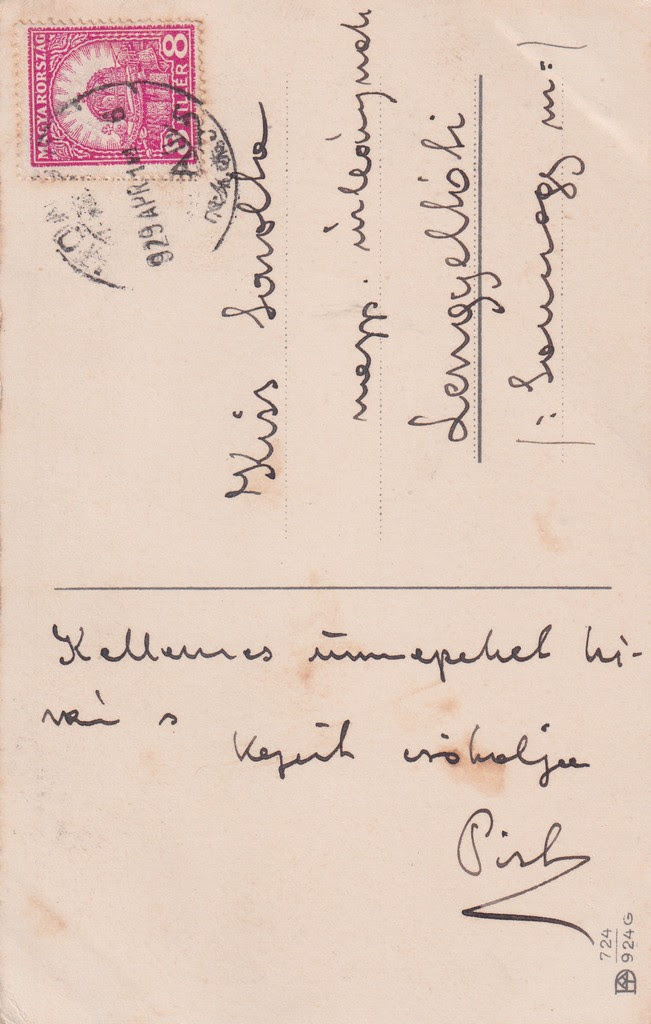 MAGYARORSZÁG
8
929 APR.
6
Kiss Sarolta
nagys. úrleánynak
Lengyeltóti
/: Somogy m :/
Kellemes ünnepeket ki-
ván s
kezeit csókolja
Pista
724
924 G